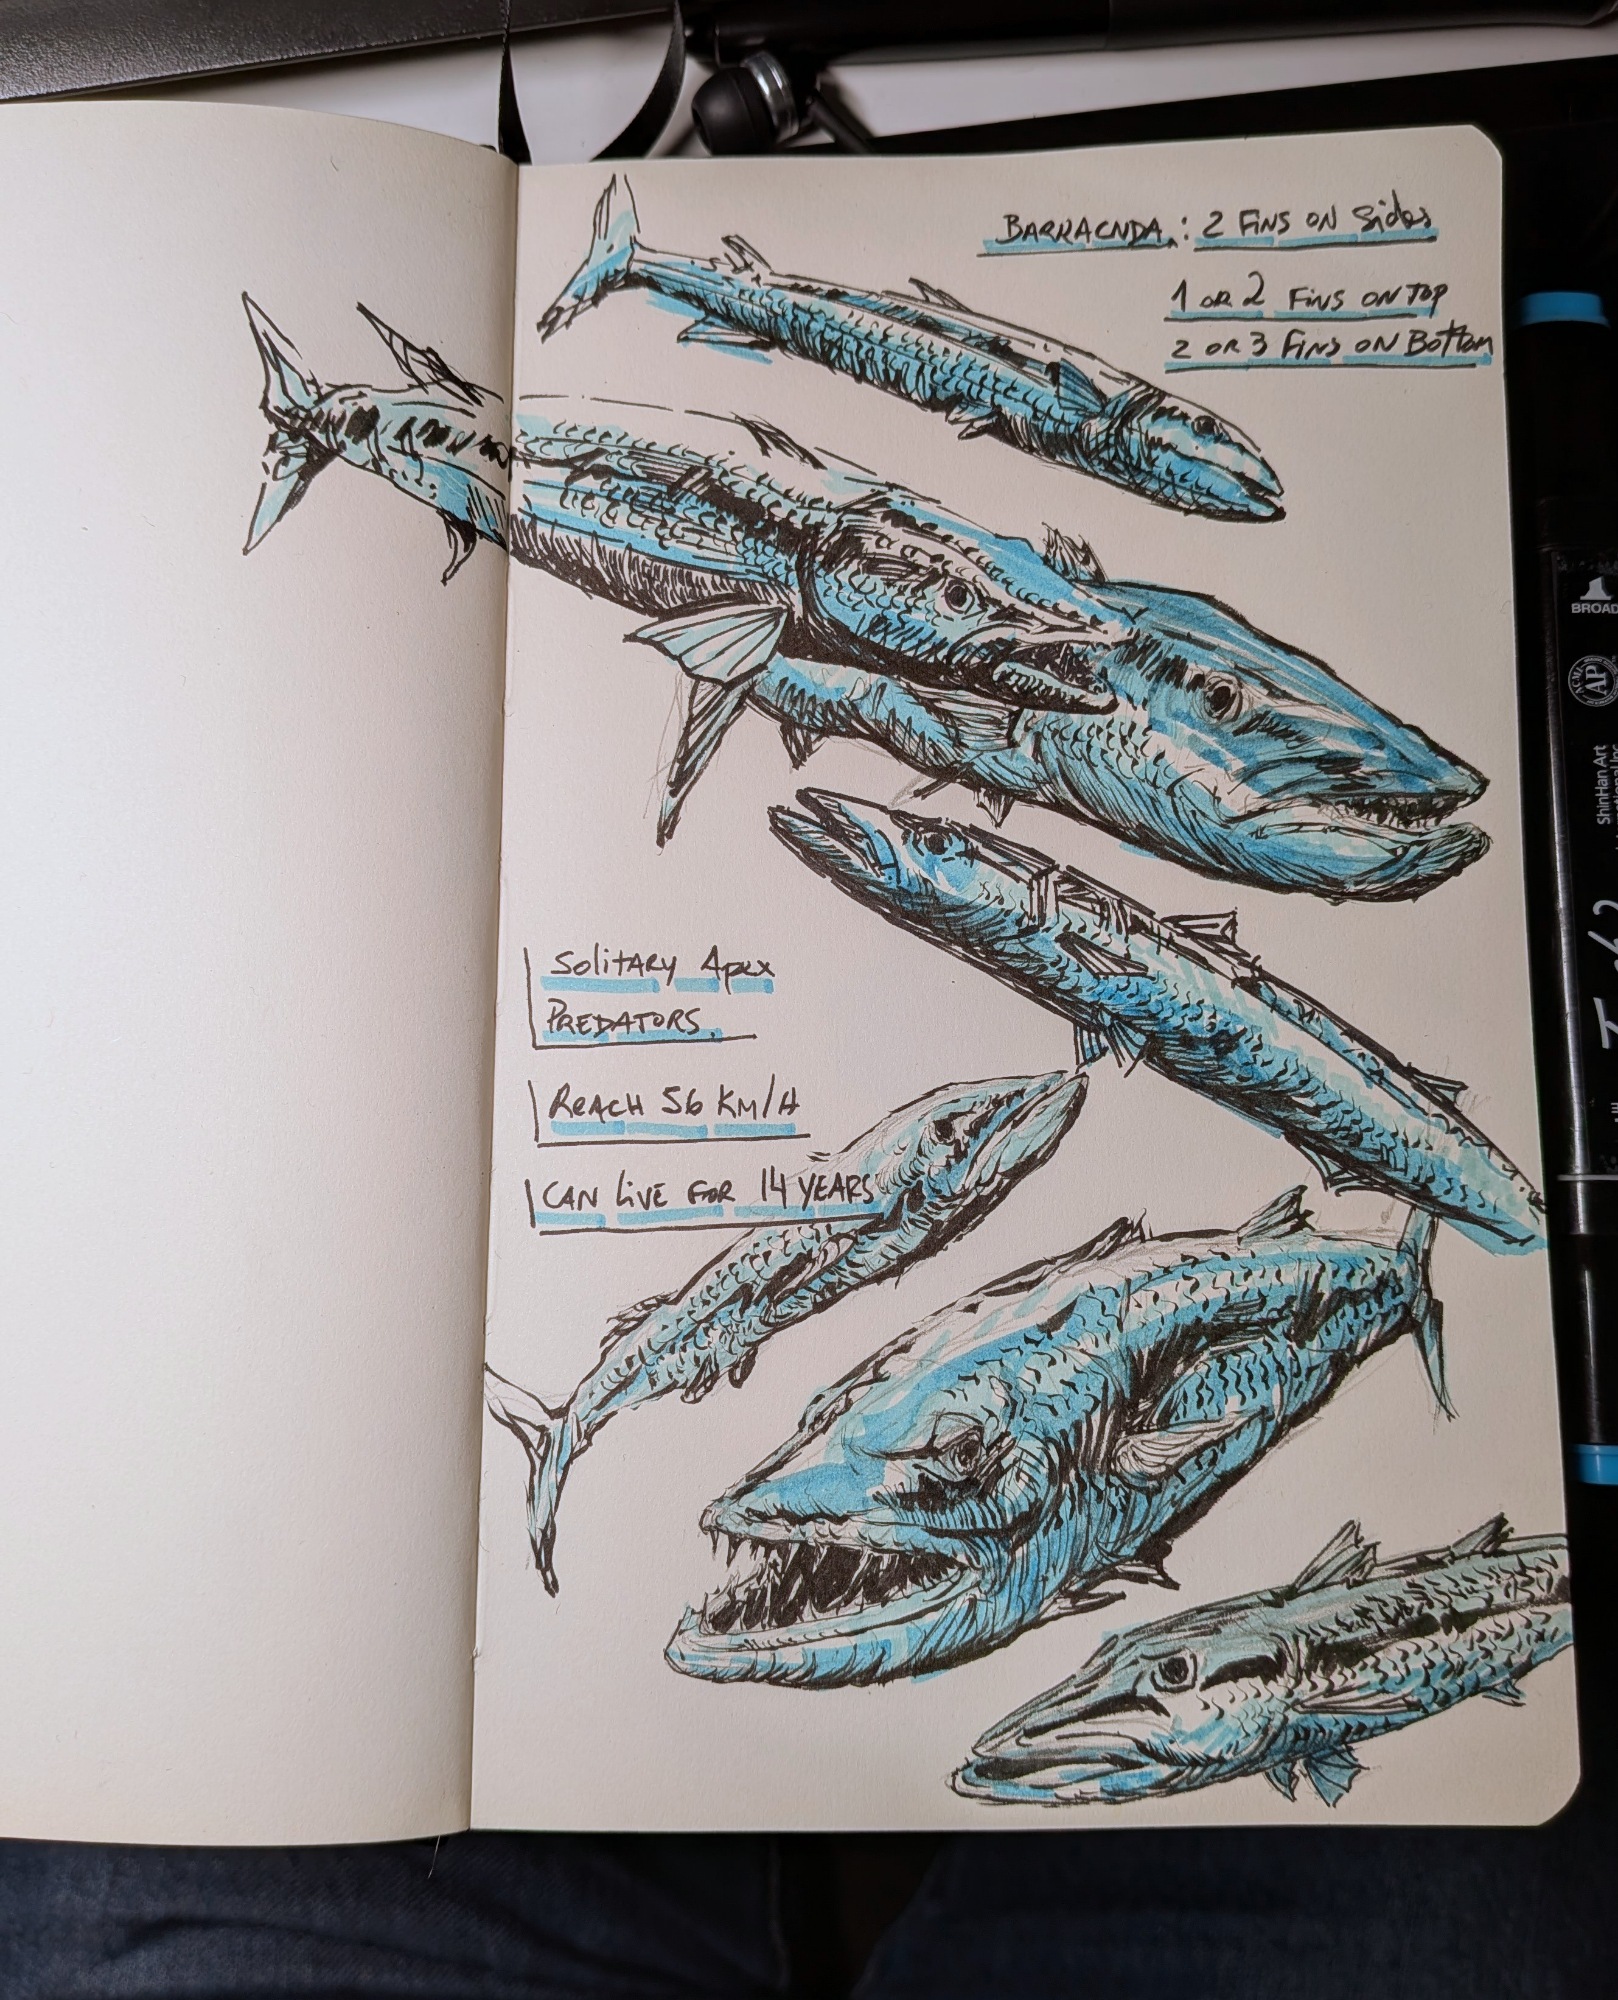 BARRACNDA.: 2 FINS ON Sides
1 OR 2 FINS ON TOP
2 OR 3 FINS ON BOTTOM
Solitary Apex
PREDATORS.
REACH 56 KM/H
CAN LIVE FOR 14 YEARS
BROAD
ACMI
AP
ShinHan Art